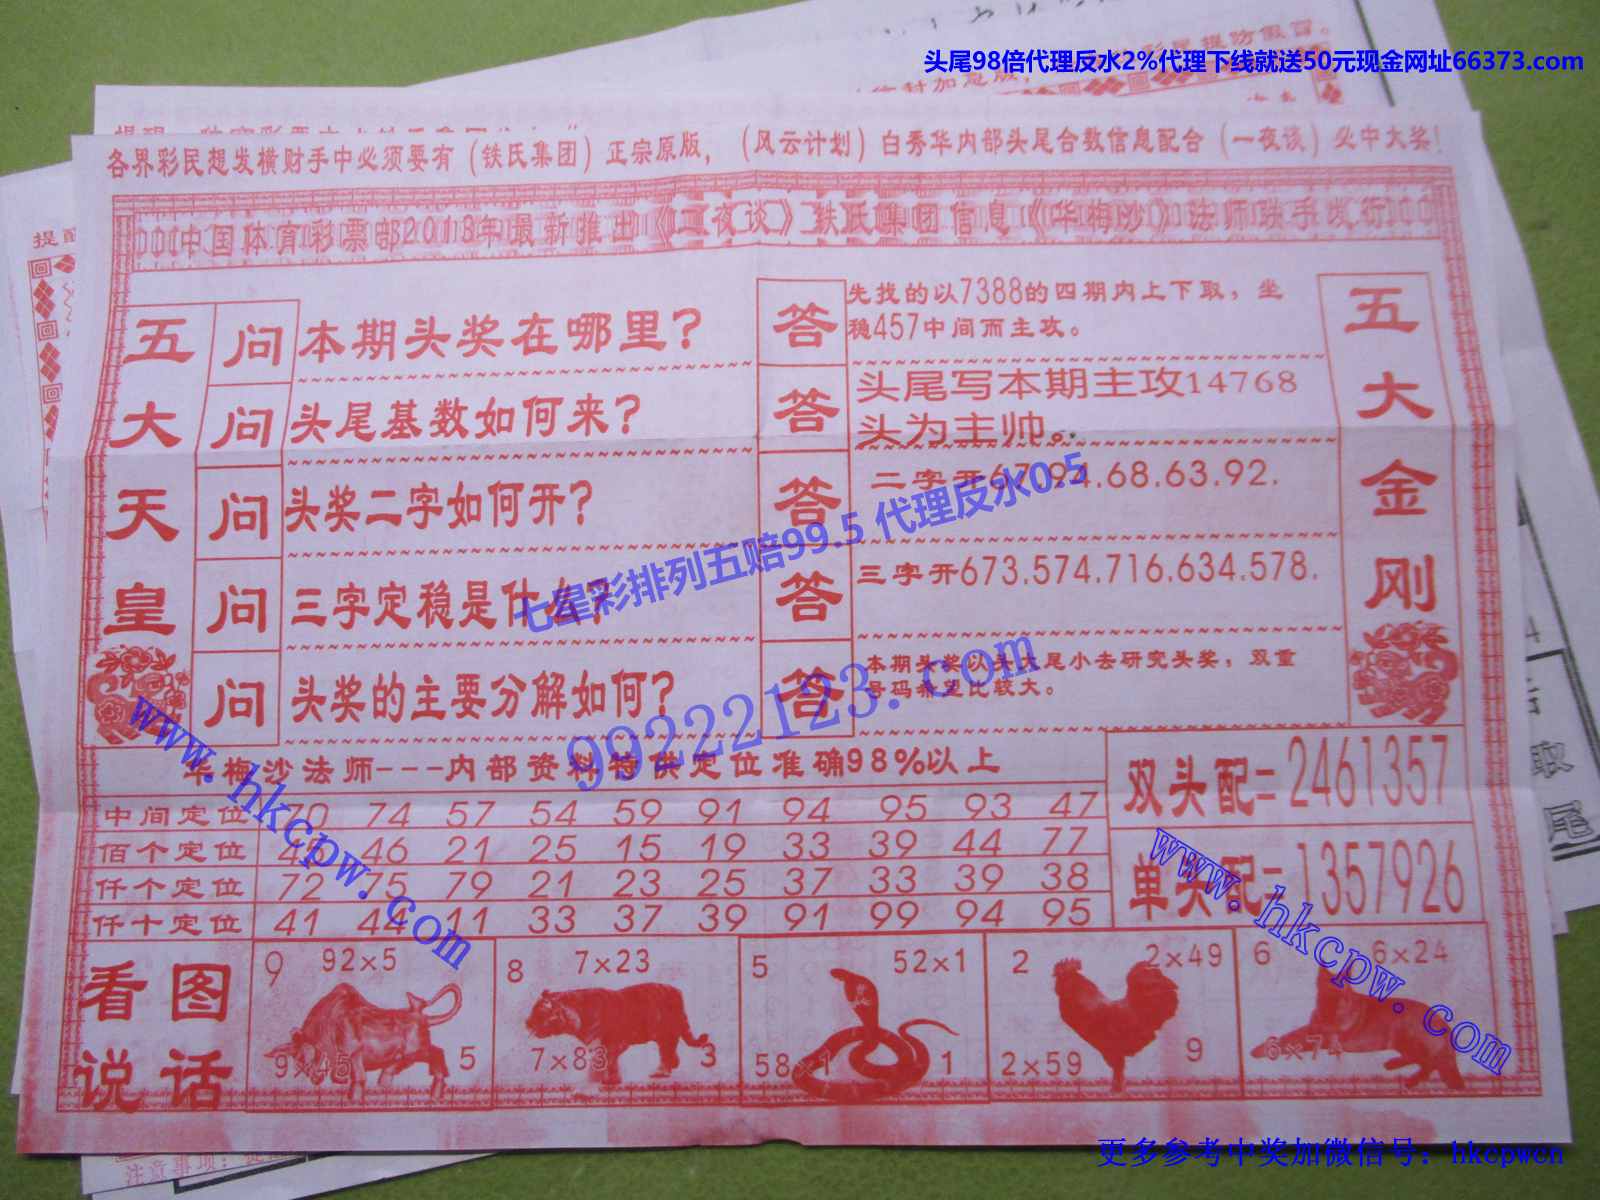 头尾98倍代理反水2%代理下线就送50元现金网址66373.com
各界彩民想发横财手中必须要有（铁氏集团）正宗原版，（风云计划）白秀华内部头尾合数信息配合（一夜谈）必中大奖！
中国体育彩票部2013年最新推出《一夜谈》铁氏集团信息《华梅沙》法师联手发行
五大天皇
问 本期头奖在哪里？
答 先找的以7388的四期内上下取，坐
稳457中间而主攻。
问 头尾基数如何来？
答 头尾写本期主攻14768
头为主帅。
问 头奖二字如何开？
答 二字开67.94.68.63.92.
问 三字定稳是什么？
答 三字开673.574.716.634.578.
问 头奖的主要分解如何？
答 本期头奖以头大尾小去研究头奖，双重
号码希望比较大。
五大金刚
七星彩排列五赔99.5 代理反水0.5
99222123.com
华梅沙法师---内部资料特供定位准确98%以上
中间定位 70 74 57 54 59 91 94 95 93 47
佰个定位 45 46 21 25 15 19 33 39 44 77
仟个定位 72 75 79 21 23 25 37 33 39 38
仟十定位 41 44 11 33 37 39 91 99 94 95
双头配=2461357
单头配=1357926
www.hkcpw.com
www.hkcpw.com
看图
说话
9 92×5
9×45 5
8 7×23
7×83 3
5 52×1
58×1 1
2 2×49
2×59 9
6 6×24
6×74
注意事项：
更多参考中奖加微信号：hkcpwcn